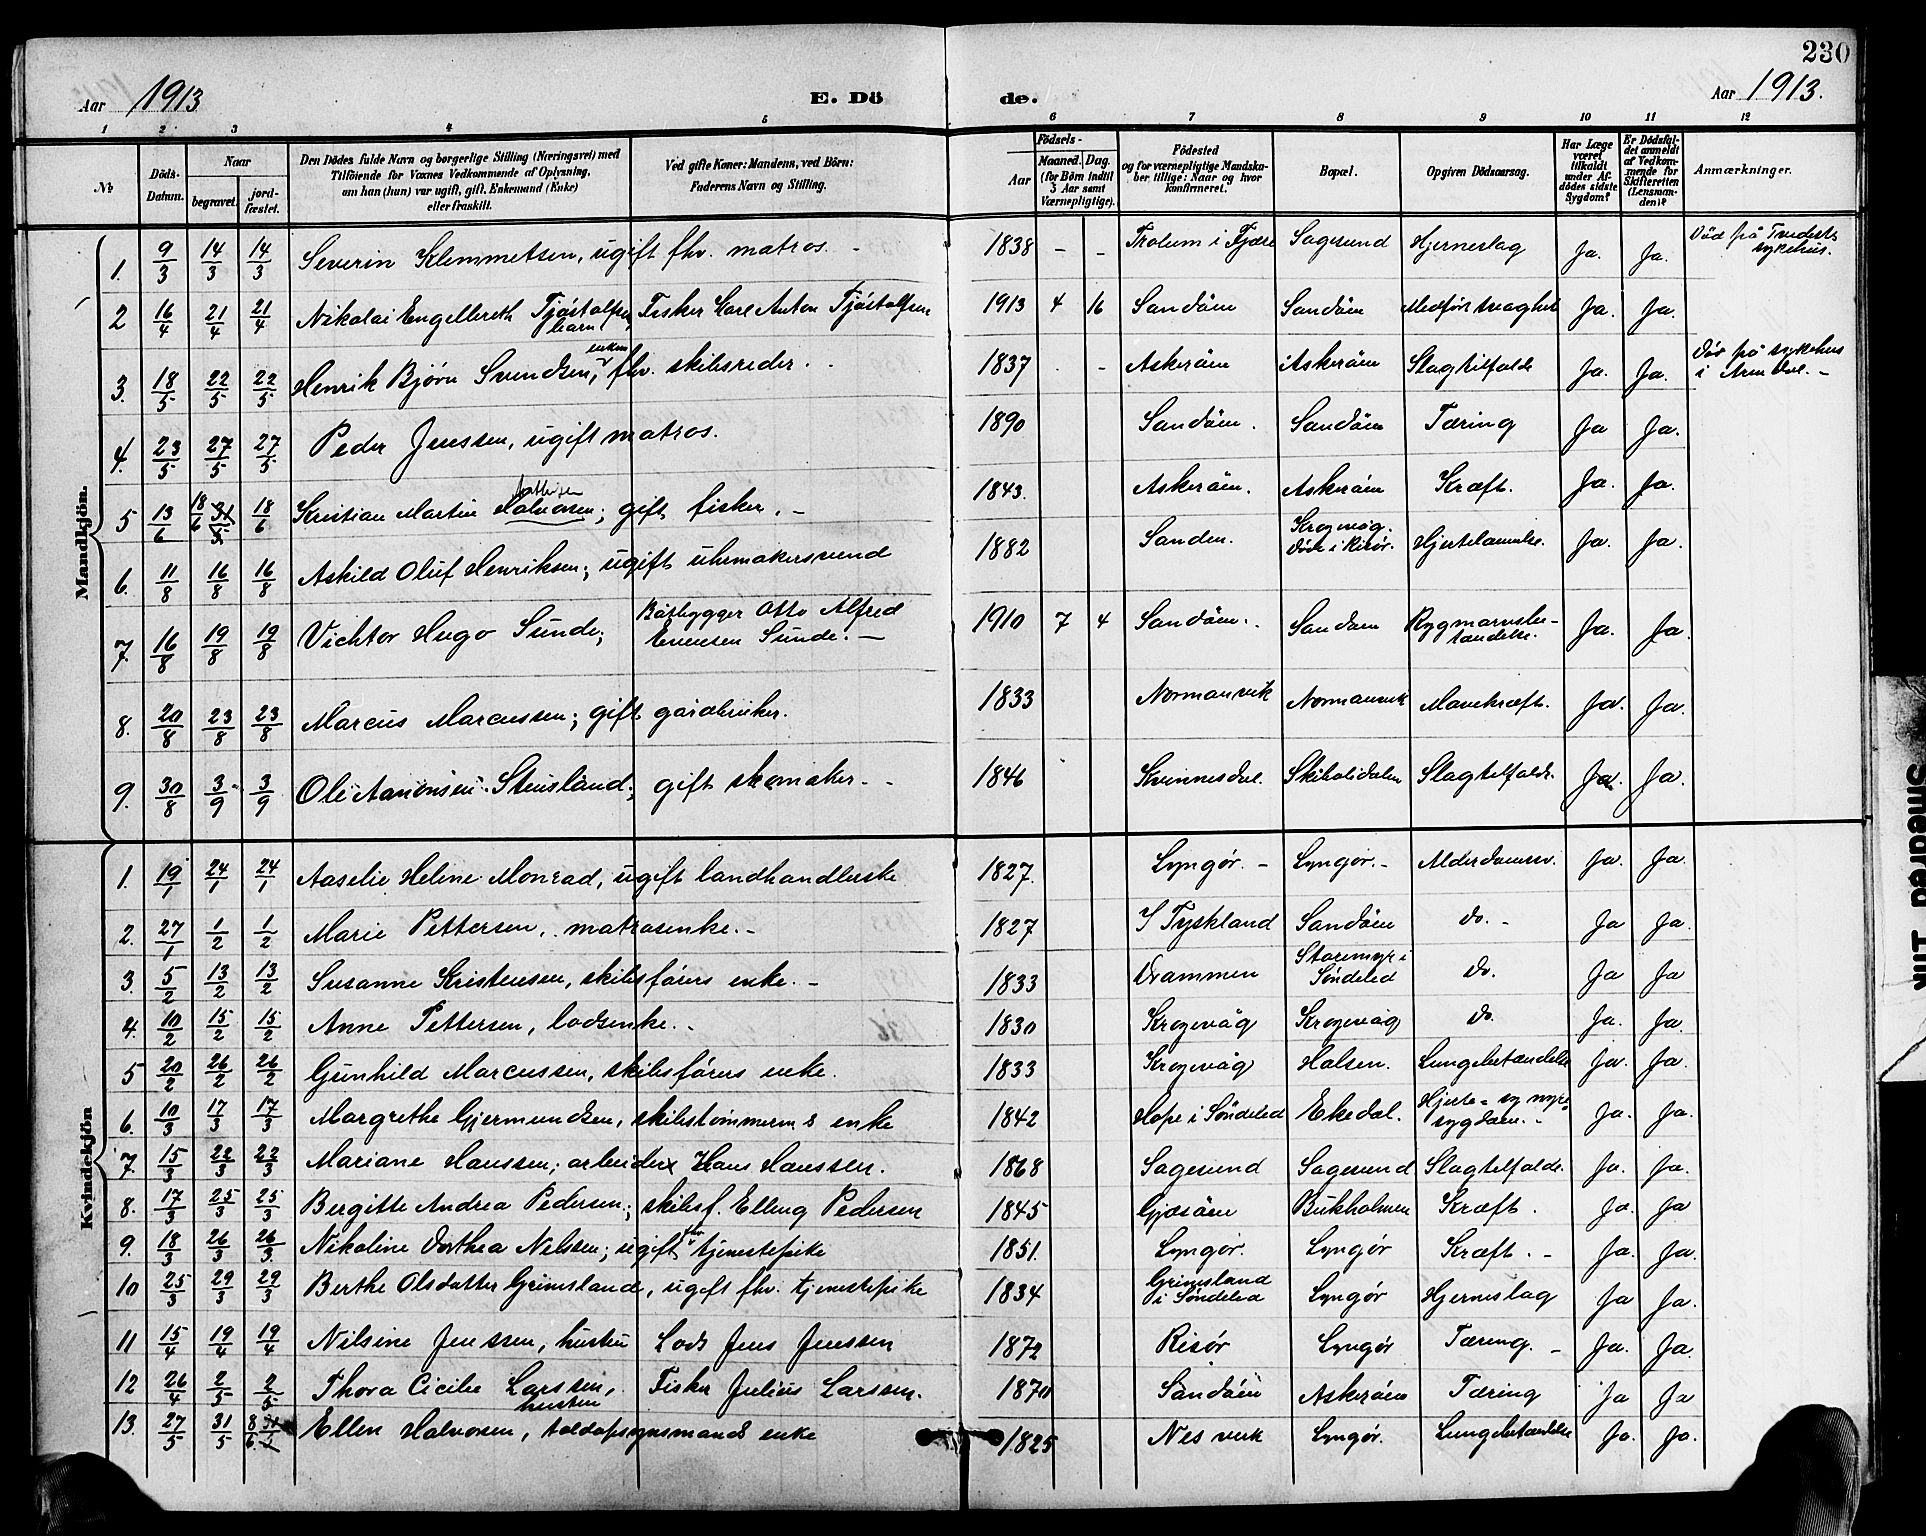 230
Aar 1913
E. Dö
de.
Aar 1913.
1 2 3 4 5 6 7 8 9 10 11 12
No
Döds-Datum.
Naar
begravet.
jordfæstet.
Den Dödes fulde Navn og borgerlige Stilling (Næringsvei) med
Tilföiende for Voxnes Vedkommende af Oplysning,
om han (hun) var ugift, gift, Enkemand (Enke)
eller fraskilt.
Ved gifte Koner: Mandens, ved Börn:
Faderens Navn og Stilling.
Födsels-
Aar
Maaned. Dag.
(for Börn indtil
3 Aar samt
Værnepligtige).
Födested
og for værnepligtige Mandskaber tillige: Naar og hvor
konfirmeret.
Bopæl.
Opgiven Dödsaarsag.
Har Læge
været
tilkaldt
under Afdödes sidste
Sygdom?
Er Dödsfaldet anmeldt
af Vedkommende for
Skifteretten
(Lensmanden)?
Anmærkninger.
Mandkjön.
1. 9/3 14/3 14/3 Severin Klemmetsen, ugift fhv. matros. - 1838 - - Trolum i Fjære Sagesund Hjerneslag Ja. Ja. Död på Tvedests sykehus.
2 16/4 21/4 21/4 Nikolai Engellereth Tjøstolfsen, barn Fisker Carl Anton Tjøstolfsen 1913 4 16 Sandöen Sandöen Medført svaghet Ja. Ja.
3. 18/5 22/5 22/5 Henrik Bjørn Svendsen, enkem fhv. skibsreder. 1837 . - Askeröen Askeröen Slagtilfælde Ja. Ja. Dør på sykehus i Arendal. -
4. 23/5 27/5 27/5 Peder Jenssen, ugift matros. 1890 Sandöen. Sandöen Tæring Ja Ja.
5 13/6 18/6 31/5 18/6 Kristian Martin Halvorsen; gift fisker. - 1843. Askeröen. Askeröen Kræft. Ja. Ja.
6. 11/8 16/8 16/8 Askild Oluf Henriksen; ugift uhrmakersvend 1882 Sanden. Krogevåg. Död i Risør. Hjertelammelse. Ja. Ja.
7. 16/8 19/8 19/8 Vichtor Hugo Sunde; Båtbygger Otto Alfred Evensen Sunde. - 1910 7 4 Sandöen. Sandöen Rygmarvsbetændelse. Ja. Ja.
8. 20/8 23/8 23/8 Marcus Marcussen; gift gårdbruker. 1833 Normanvik Normanvik Mavekræft. Ja. Ja.
9. 30/8 3/9 3/9 Ole Aanonsen Stensland; gift skomaker. - 1846 Kvinnesdal. Skibolidalen Slagtilfælde. Ja. Ja.
Kvindekjön
1. 19/1 24/1 24/1 Aaselie Helene Monrad, ugift landhandlerske 1827. Lyngør. - Lyngør. - Alderdomssv. Ja. Ja.
2. 27/1 1/2 1/2 Marie Pettersen, matrosenke. - 1827 I Tyskland Sandöen do. - Ja Ja
3. 5/2 13/2 13/2 Susanne Kristensen, skibsførers enke. - 1833 Drammen Staremyr i Söndeled do. Ja Ja
4. 10/2 15/2 15/2 Anne Pettersen, lodsenke. 1830 Krogevåg Krogevåg do. Ja. Ja.
5 20/2 26/2 26/2 Gunhild Marcussen, skibsførers enke. 1833 Krogevåg Halsen. Lungebetændelse Ja. Ja.
6. 10/3 17/3 17/3 Margrethe Gjermundsen, skibstømmerm s enke 1842 Hope i Söndeled Ekedal. Hjerte- og nyresygdom. - Ja. Ja.
7. 15/3 22/3 22/3 Mariane Hanssen; arbeider Hans Hanssen. 1868 Sagesund Sagesund Slagtilfælde. Ja. Ja.
8. 17/3 25/3 25/3 Bergitte Andrea Pedersen; skibsf. Elling Pedersen 1845 Gjæsöen Bukholmen Kræft. Ja. Ja
9. 18/3 26/3 26/3. Nikoline Dorthea Nelssen; ugift fhv tjenestepike 1851. Lyngør. Lyngør Kræft. - Ja. Ja.
10 25/3 29/3 29/3 Berthe Olsdatter Grimsland, ugift fhv. tjenestepike 1834 Grimsland i Söndeled Lyngør Hjerneslag Ja Ja.
11 15/4 19/4 19/4 Nilsine Jenssen, hustru Lods Jens Jenssen 1872 Risör Lyngør Tæring. - Ja. Ja.
12 26/4 2/5 2/5 Thora Cicilie Larssen, hustru Fisker Julius Larssen. 1870 Sandöen Askeröen Tæring Ja Ja
13. 27/5 31/5 8/6 Ellen Halvorsen, toldopsynsmands enke 1825 Nes verk Lyngør. Lungebetændelse Ja. Ja.